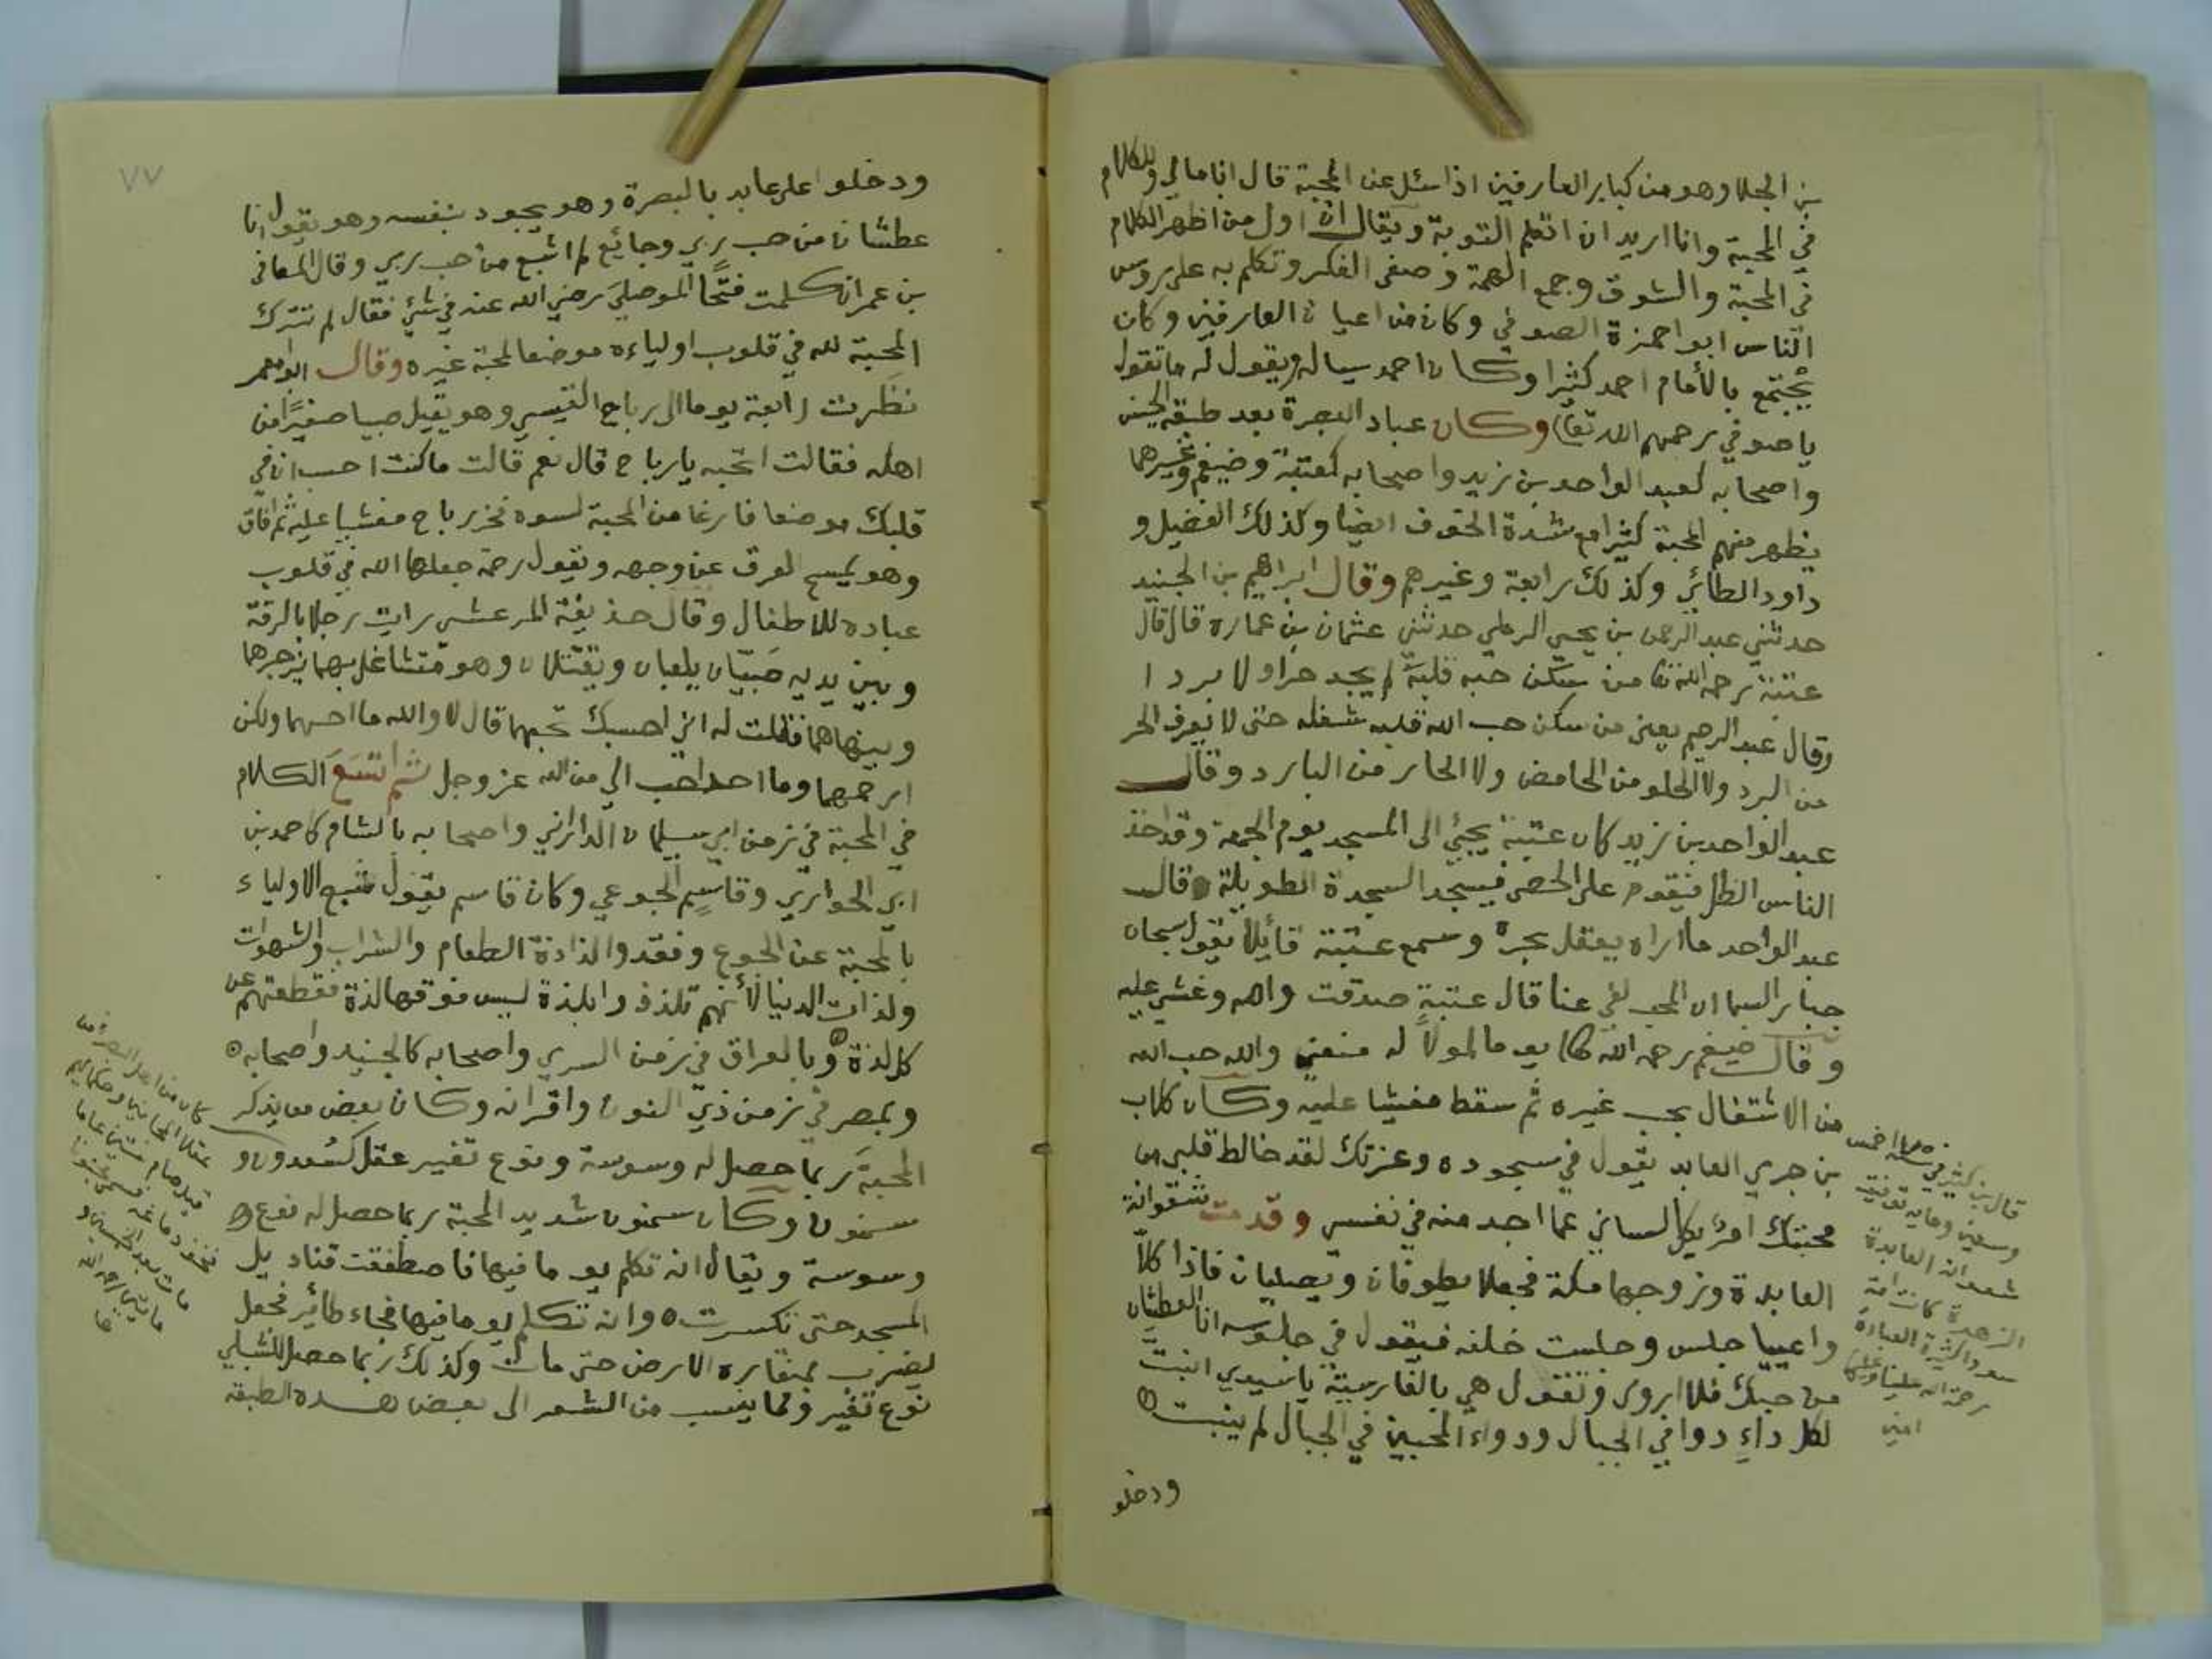 بن الجلا وهو من كبار العارفين اذا سئل عن المحبة قال انا مالي وللكلام
في المحبة وانا اريد ان اتعلم التوبة ويقال ان اول من اظهر الكلام
في المحبة والشوق وجمع الهمة وصفى الفكر وتكلم به على روس
الناس ابو احمزة الصوفي وكان من اعيان العارفين وكان
يجتمع بالأمام احمد كثيرا وكان احمد يساله ويقول له ما تقول
يا صوفي رحمهم الله تعا وكان عباد البصرة بعد طبقه الحسن
واصحابه لعبد الواحد بن زيد واصحابه كعتبة وضيغم وغيرهما
يظهر منهم المحبة كثيرا مع شدة الخوف ايضا وكذلك الفضيل و
داود الطائي وكذلك رابعة وغيرهم وقال ابراهيم بن الجنيد
حدثني عبد الرحمن بن يحيى الرملي حدثني عثمان بن عمارة قال قال
عتبة رحمه الله تعا من سكن حبه قلبه لم يجد حرا ولا بردا
وقال عبد الرحيم يعني من سكن حب الله قلبه شغله حتى لا يعرف الحر
من البرد ولا الحلو من الحامض ولا الحار من البارد وقال
عبد الواحد بن زيد كان عتبة يجئي الى المسجد يوم الجمعة وقد اخذ
الناس الظل فيقوم على الحصى فيسجد السجدة الطويلة قال
عبد الواحد ما اراه يعقل بحره وسمع عتبة قائلا يقول سبحان
جبار السما ان المحب لفي عنا قال عتبة صدقت والله وغشي عليه
وقال ضيغم رحمه الله تعا يوما لمولاً له منعني والله حب الله
من الاشتغال بحب غيره ثم سقط مغشيا عليه وكان كلاب
بن جري العابد يقول في سجوده وعزتك لقد خالط قلبي من
محبتك امر يكل لساني عما اجد منه في نفسي وقدمت شقوانة
العابدة وزوجها مكة فجعلا يطوفان ويصليان فاذا كلاّ
واعييا جلس وجلست خلفه فيقول في جلوسه انا العطشان
من حبك فلا اروى وتقول هي بالفارسية يا سيدي انبتّ
لكل داءِ دوا في الجبال ودواء المحبين في الجبال لم ينبت
ودخلو
قال بن كثير في سنة خمس
وسبعين وماية توفيت
شعوانة العابدة
الزهدة كانت امة
سودا كثيرة العبادة
رحمة الله علينا وعليها
امين
٧٧
ودخلوا على عابد بالبصرة وهو يجود بنفسه وهو يقول انا
عطشان من حب ربي وجايع لم اشبع من حب ربي وقال المعافى
بن عمران كلمت فتحًا الموصلي رضي الله عنه في شئ فقال لم تترك
المحبة لله في قلوب اولياءه موضعا لمحبة غيره وقال ابو معمر
نظَرت رابعة يوما الى رباح القيسي وهو يقبل صبيا صغيرًا من
اهله فقالت اتحبه يا رباح قال نعم قالت ما كنت احسب ان في
قلبك موضعا فارغا من المحبة لسوه فخر رباح مغشيا عليه ثم افاق
وهو يمسح العرق عن وجهه ويقول رحمة جعلها الله في قلوب
عباده للاطفال وقال حذيفة المرعشي رايت رجلا بالرقة
وبين يديه صَبيّان يلعبان ويقتتلان وهو متشاغل بهما يزجرهما
وينهاهما فقلت له اني احسبك تحبهما قال لا والله ما احبهما ولكن
ارحمهما وما احد احب الي من الله عز وجل ثم اتسَعَ الكلام
في المحبة في زمن ابي سليمان الداراني واصحابه بالشام كاحمد بن
ابي الحواري وقاسم الجوعي وكان قاسم يقول شبع الاولياء
بالمحبة عن الجوع وفقدوا لذاذة الطعام والشراب والشهوات
ولذات الدنيا لأنهم تلذذوا بلذة ليس فوقها لذة فقطعتهم عن
كل لذة وبالعراق في زمن السري واصحابه كالجنيد واصحابه
وبمصر في زمن ذي النون واقرانه وكان بعض من يذكر
المحبة ربما حصل له وسوسة ونوع تغيير عقل كسُعدون و
سمنون وكان سمنون شديد المحبة ربما حصل له نوع
وسوسة ويقال انه تكلم يوما فيها فاصطفقت قناديل
المسجد حتى تكسرت وانه تكلم يوما فيها فجاء طائر فجعل
يضرب بمنقاره الارض حتى مات وكذلك ربما حصل للشبلي
نوع تغير ومما ينسب من الشعر الى بعض هذه الطبقة
كان من اهل البصرة من
عقلاء المجانين وحكمائهم
صام ستين عاما
فخف دماغه فسمي مجنونا
مات بعد الخمسين و
مايتين رحمه الله